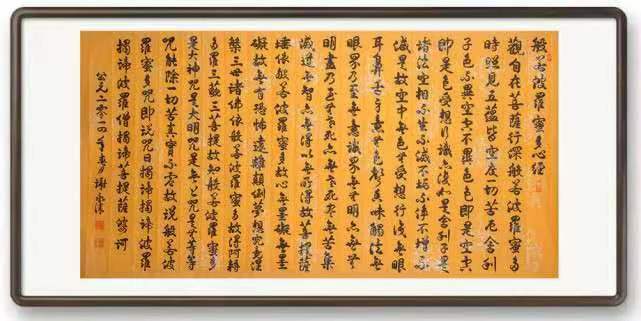 般若波羅蜜多心經
觀自在菩薩行深般若波羅蜜多
時照見五蘊皆空度一切苦厄舍利
子色不異空空不異色色即是空空
即是色受想行識亦復如是舍利子是
諸法空相不生不滅不垢不淨不增不
減是故空中無色無受想行識無眼
耳鼻舌身意無色聲香味觸法無
眼界乃至無意識界無無明亦無無
明盡乃至無老死亦無老死盡無苦集
滅道無智亦無得以無所得故菩提薩
埵依般若波羅蜜多故心無罣礙無罣
礙故無有恐怖遠離顛倒夢想究竟涅
槃三世諸佛依般若波羅蜜多故得阿耨
多羅三藐三菩提故知般若波羅蜜多
是大神咒是大明咒是無上咒是無等等
咒能除一切苦真實不虛故說般若波
羅蜜多咒即說咒曰揭諦揭諦波羅
揭諦波羅僧揭諦菩提薩婆訶
公元二零一四年春月謝